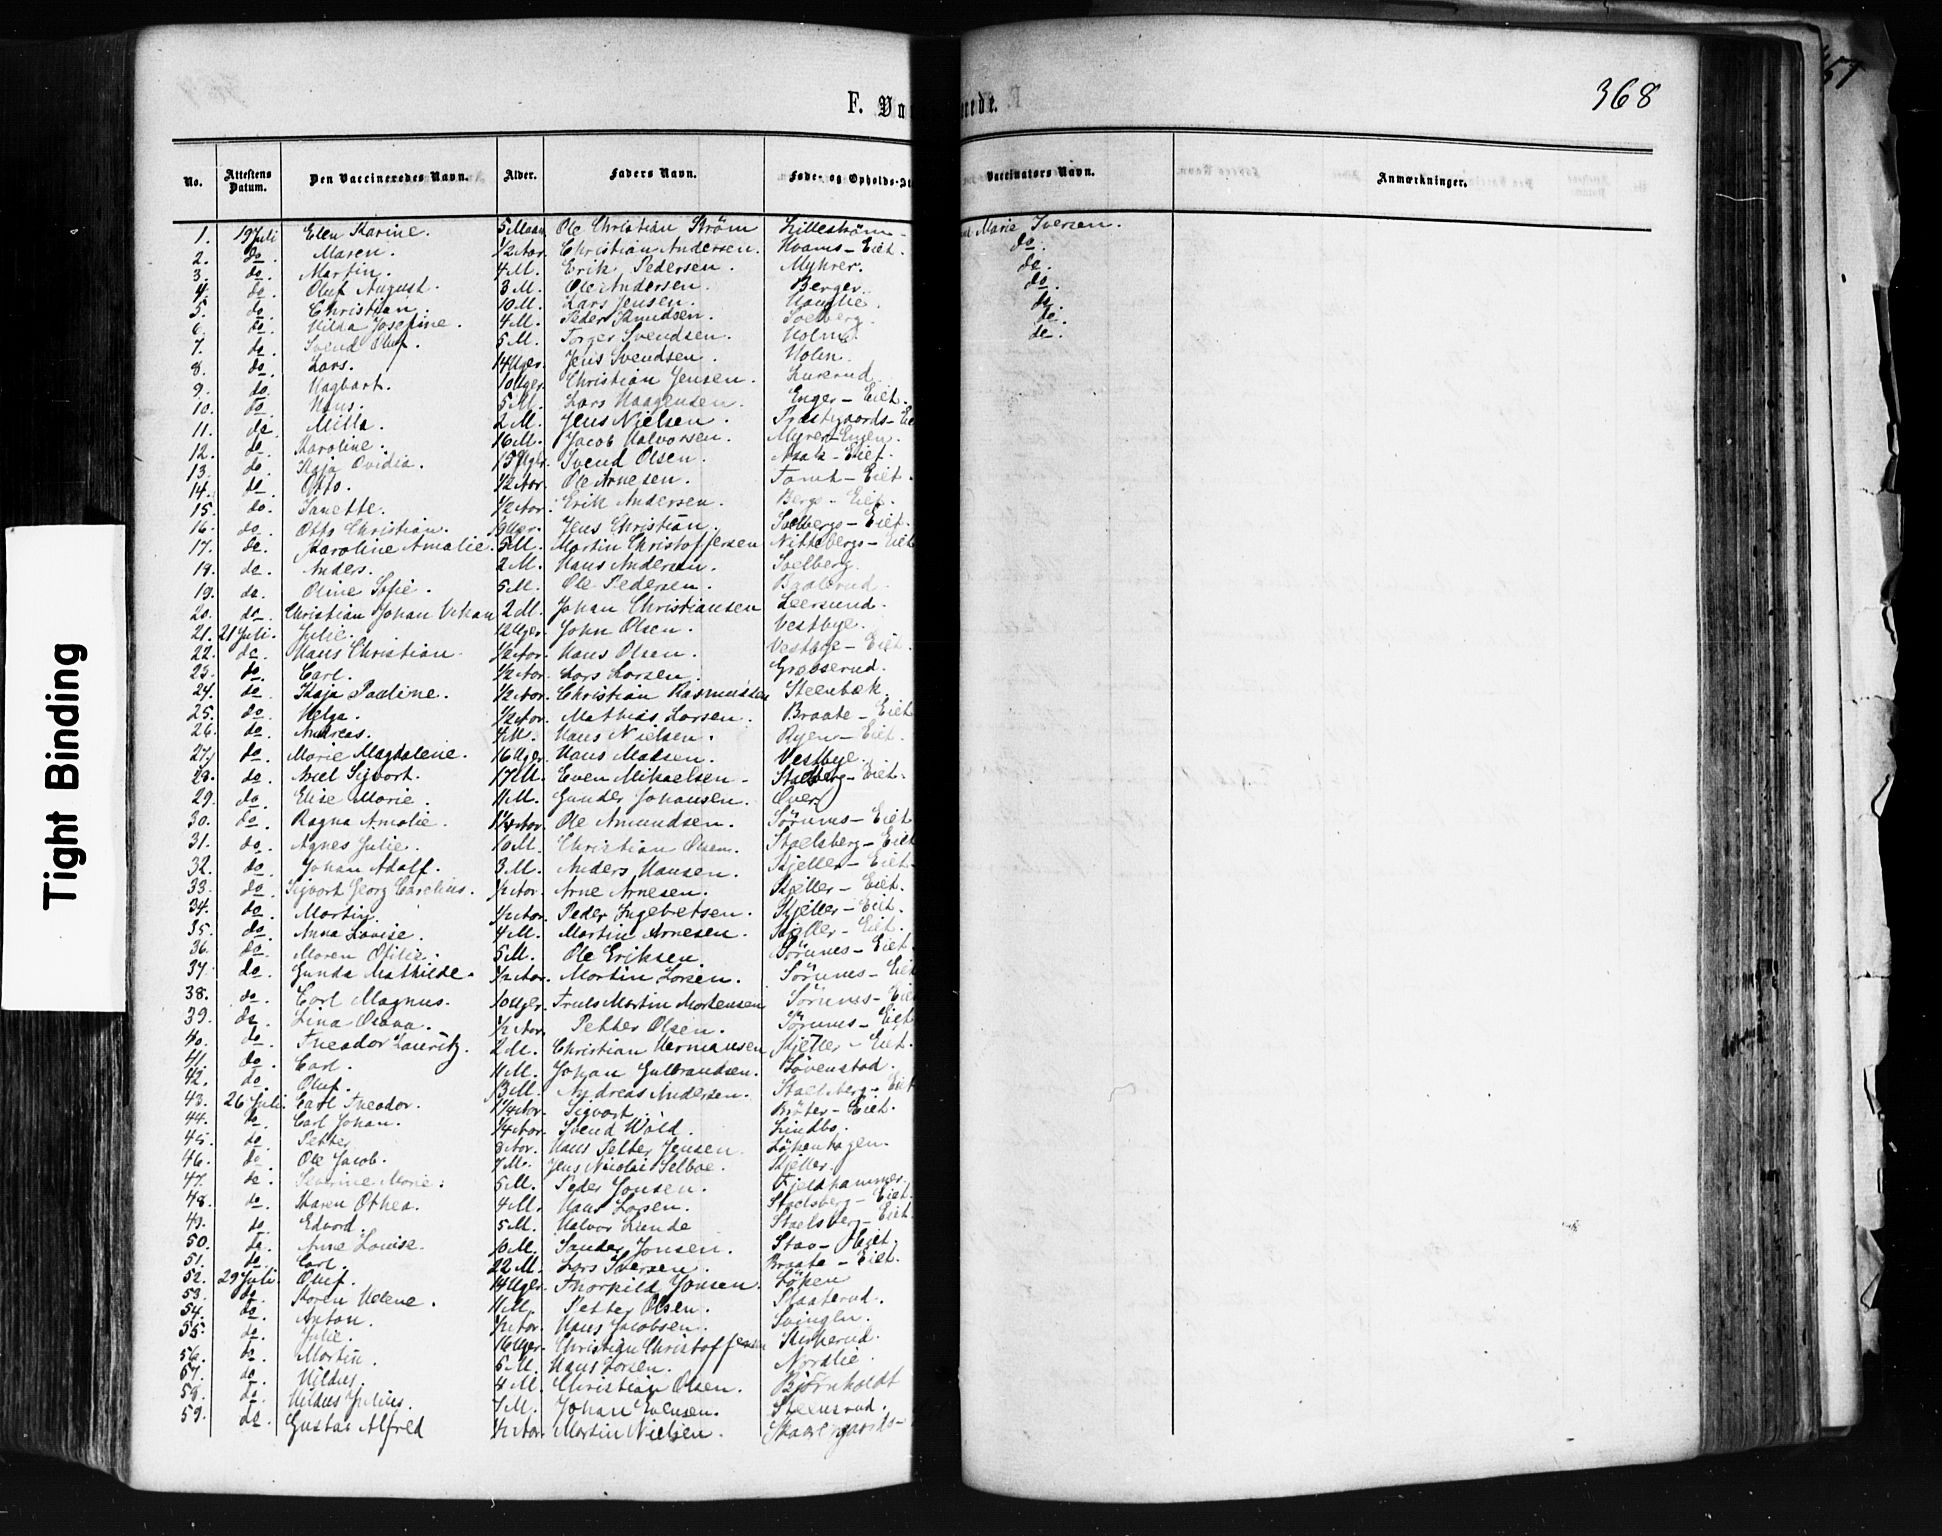 Tight Binding
368
F. Vac rede.
No. Attestens Datum. Den Vaccineredes Navn. Alder. Faders Navn. Føde- og Opholds-St Vaccinators Navn. Anmærkninger.
1. 19 Juli Elen Karine. 5 Maan Ole Christian Strøm Lillestrøm Marie Iversen.
2. do. Maren. 1/2 Aar. Christian Andersen. Hvams-Eiet. do.
3. do. Martin. 4 M. Erik Pedersen. Myhrer. do.
4. do. Oluf August. 3 M. Ole Andersen. Berger. do.
5. do. Christian. 10 M. Lars Jensen. do.
6. do. Hilda Josefine. 4 M. Peder Knudsen. Solberg. do.
7. do. Svend Oluf. 5 M. Torger Svendsen. Holm do.
8. do. Lars. 14 Uger. Jens Svendsen. Holm.
9. do. Hagbart. 10 Uger. Christian Jensen.
10. do. Hans. 5 M. Lars Haagensen. Enger-Eiet.
11. do. Milla. 2 M. Jens Nielsen. Præstegaards-Ei
12. do. Karoline. 16 M. Jacob Halvorsen. Myrer-Engen.
13. do. Kaja Ovidia. 15 Uger. Svend Olsen.
14. do. Otto. 1/2 Aar. Ole Arnesen. Tomt-Eiet.
15. do. Janette. 1/2 Aar. Erik Andersen. Bergs-Eiet.
16. do. Otto Christian. 19 Uger. Jens Christian. Solbergs-Eiet.
17. do. Karoline Amalie. 5 M. Martin Christoffersen Nittebergs-Eiet
18. do. Anders. 2 M. Hans Andersen. Solberg.
19. do. Oline Sofie. 5 M. Ole Pedersen.
20. do. Christian Johan 2 M. Johan Christiansen Leersund.
21. 21 Juli. Julie. 12 Uger. John Olsen. Vestbye.
22. do. Hans Christian. 1/2 Aar. Hans Olsen. Vestbye-Eiet.
23. do. Carl. 1/2 Aar. Lars Larsen.
24. do. Kaja Pauline. 1/2 Aar. Christian Rasmussen Steenbæk.
25. do. Helga. 1/2 Aar. Mathias Larsen. Braate-Eiet
26. do. Andreas. 4 M. Hans Nielsen. Ryen-Eiet.
27. do. Marie Magdalene. 16 Uger. Hans Madsen. Vestbye.
28. do. Axel Sigvart. 17 M. Even Mikaelsen. Stalsberg-Eiet.
29. do. Elise Marie. 11 M. Gunder Johansen.
30. do. Ragna Amalie. Ole Amundsen. Sørums-Eiet
31. do. Agnes Julie. 10 M. Christian Olsen. Staelsberg-Eiet
32. do. Johan Adolf. 3 M. Anders Hansen. Skjeller-Eiet.
33. do. Sigvart Georg Carelius. 1/2 Aar. Arne Arnesen. Skjeller-Eiet.
34. do. Martin. 1/2 Aar. Peder Ingebretsen. Skjeller-Eiet.
35. do. Anna Lovise. 4 M. Martin Arnesen. Skjeller-Eiet.
36. do. Maren Otilie. 5 M. Ole Eriksen Sørums-Eiet.
37. do. Gunda Mathilde. 1/2 Aar. Martin Larsen. Sørums-Eiet
38. do. Carl Magnus. 10 Uger. Truls Martin Mortensen Sørums-Eiet
39. do. Lina 1/2 Aar. Petter Olsen. Sørums-Eiet
40. do. Theodor Lauritz. 2 M. Christian Hermansen Skjeller-Eiet.
41. do. Carl. 11 M. Johan Gulbrandsen. Løvenstad.
42. do. Oluf. 3 M. Andreas Andersen. Staelsberg-Eiet
43. 26 Juli. Carl Theodor. 1 1/4 Aar. Sigvart. Bråter-Eiet.
44. do. Carl Johan. Svend Wold. Lindbo.
45. do. Petter 3 Aar. Hans Petter Jensen. Løkenhagen.
46. do. Ole Jacob. 7 M. Jens Nicolai Selboe. Skjeller.
47. do. Severine Marie. 5 M. Peder Jonsen. Fjeldhammer.
48. do. Karen Othea. 4 M. Hans Larsen. Staelsberg-Eiet.
49. do Edvard. 5 M. Halvor Lunde Staelsberg-Eiet.
50. do. Anne Louise. 10 M. Sander Jonsen. Stav-Eiet.
51. do. Carl. 22 M. Lars Iversen. Braate-Eiet.
52. 29 Juli. Oluf. 14 Uger. Thorkild Jonsen. Løken
53. do. Karen Helene. 11 M. Petter Olsen.
54. do. Anton. 1/2 Aar. Hans Jacobsen. Svingen.
55. do. Julie. 16 Uger. Christian Christoffersen
56. do. Martin. 5 M. Hans Larsen. Nordlie.
57. do. Hildus. 4 M. Christian Olsen. Bjørnholdt
58. do. Hildus Julius. 7 M. Johan Evensen. Steensrud.
59. do. Gustav Alfred 1/2 Aar. Martin Nielsen.